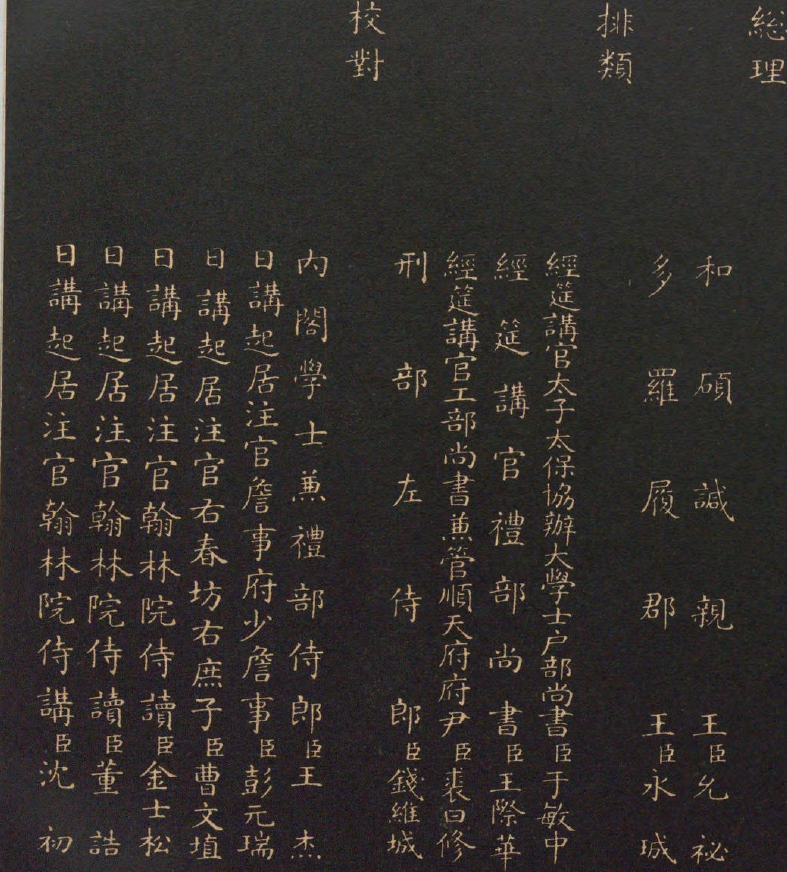 総理
和碩諴親王臣允祕
多羅履郡王臣永珹
排類
經筵講官太子太保協辦大學士户部尚書臣于敏中
經筵講官禮部尚書臣王際華
經筵講官工部尚書兼管順天府府尹臣裘曰修
刑部左侍郎臣錢維城
校對
内閣學士兼禮部侍郎臣王杰
日講起居注官詹事府少詹事臣彭元瑞
日講起居注官右春坊右庶子臣曹文埴
日講起居注官翰林院侍讀臣金士松
日講起居注官翰林院侍讀臣董誥
日講起居注官翰林院侍講臣沈初